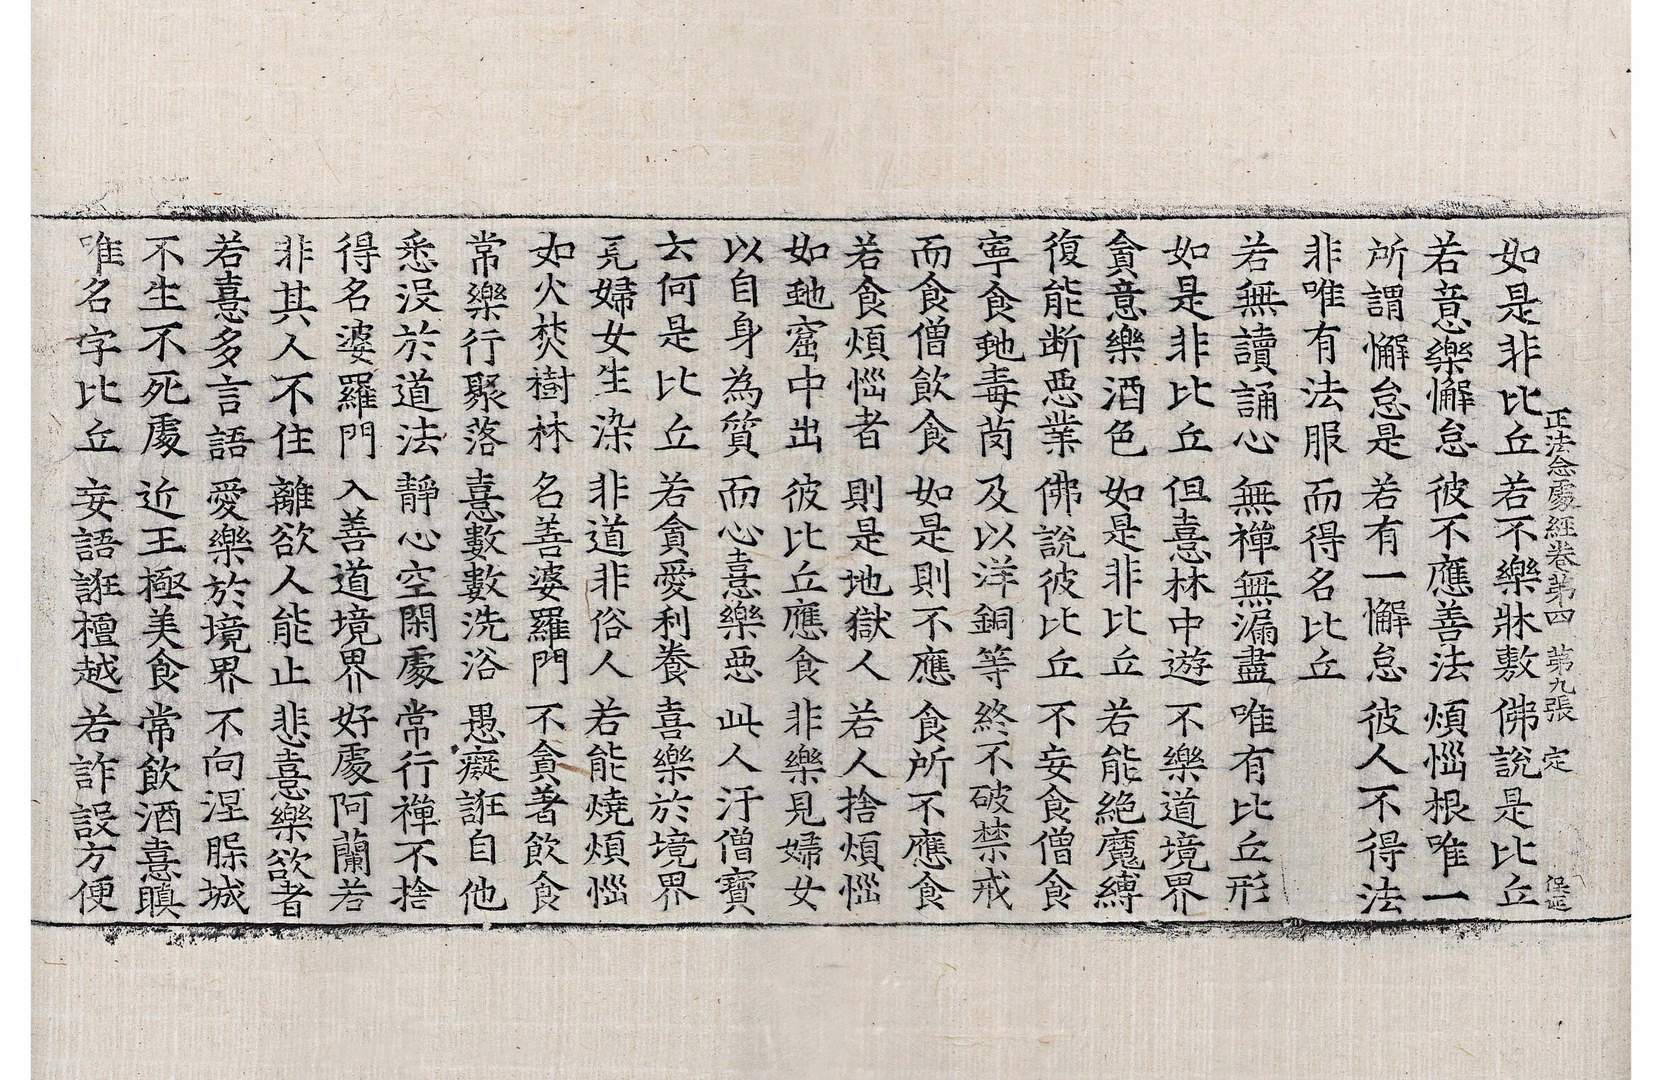 正法念處經卷第四 第九張 定
如是非比丘 若不樂牀敷 佛說是比丘
若意樂懈怠 彼不應善法 煩惱根唯一
所謂懈怠是 若有一懈怠 彼人不得法
非唯有法服 而得名比丘
若無讀誦心 無禪無漏盡 唯有比丘形
如是非比丘 但憙林中遊 不樂道境界
貪意樂酒色 如是非比丘 若能絕魔縛
復能断惡業 佛說彼比丘 不妄食僧食
寧食虵毒茵 及以洋銅等 終不破禁戒
而食僧飲食 如是則不應 食所不應食
若食煩惱者 則是地獄人 若人捨煩惱
如虵窟中出 彼比丘應食 非樂見婦女
以自身為質 而心憙樂惡 此人汙僧寶
云何是比丘 若貪愛利養 喜樂於境界
見婦女生染 非道非俗人 若能燒煩惱
如火焚樹林 名善婆羅門 不貪著飲食
常樂行聚落 憙數數洗浴 愚癡誑自他
悉沒於道法 靜心空閑處 常行禪不捨
得名婆羅門 入善道境界 好處阿蘭若
非其人不住 離欲人能止 非憙樂欲者
若憙多言語 愛樂於境界 不向涅槃城
不生不死處 近王極美食 常飲酒憙瞋
唯名字比丘 妄語誑檀越 若詐設方便